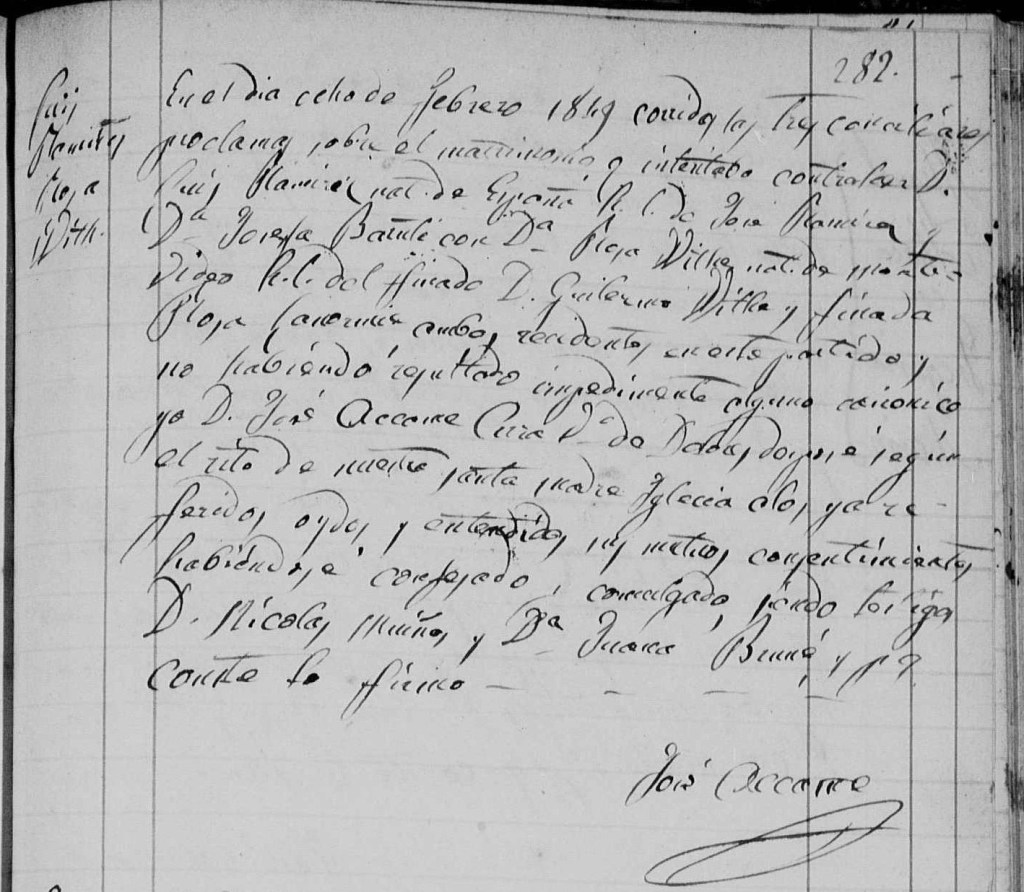 282.
Luis
Ramires
Rosa
With.
En el dia ocho de Febrero 1849 corridas las tres conciliares
proclamas sobre el matrimonio q intentaba contralaer D.
Luis Ramirez nat. de España R. L. de José Ramirez y
Dª Josefa con Dª Rosa Withe nat. de Monte-
video R. L. del finado D. Guilermo Withe y finada
Rosa ambos recidentes en este partido y
no habiendo resultado impedimento alguno canonico
yo D. José Accame Cura Vº de Dolores desposé según
el rito de nuestra santa madre Iglecia a los ya re-
feridos oydos y entendidos sus mutuos consentimientos
habiéndose confesado, comulgado, siendo testigos
D. Nicolas Muños y Dª Juana Bruné y p q
conste lo firmo
José Accame